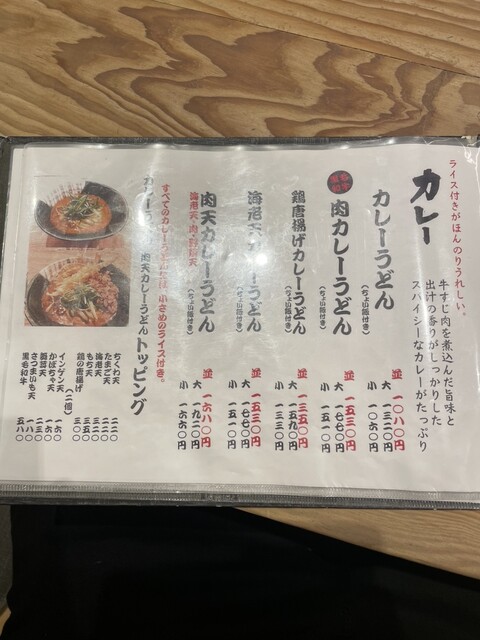 ライス付きがほんのりうれしい。
カレー
牛すじ肉を煮込んだ旨味と
出汁の香りがしっかりした
スパイシーなカレーがたっぷり
カレーうどん(ちょい飯付き)
並 一〇八〇円
大 一三二〇円
小 一〇六〇円
肉カレーうどん(ちょい飯付き)
並 一五三〇円
大 一七七〇円
小 一五一〇円
鶏唐揚げカレーうどん(ちょい飯付き)
並 一三五〇円
大 一五九〇円
小 一三三〇円
海老天カレーうどん(ちょい飯付き)
並 一五三〇円
大 一七七〇円
小 一五一〇円
肉天カレーうどん(ちょい飯付き)
海老天、肉、野菜天
並 一六八〇円
大 一九二〇円
小 一六六〇円
すべてのカレーうどんには、小さめのライス付き。
カレーうどん
肉天カレーうどん
トッピング
ちくわ天 二二〇
たまご天 二二〇
海老天 三五〇
もち天 二二〇
鶏の唐揚げ(二個) 三〇〇
インゲン天 一六〇
かぼちゃ天 一六〇
舞茸天 二三〇
さつまいも天 一八〇
黒毛和牛 五八〇